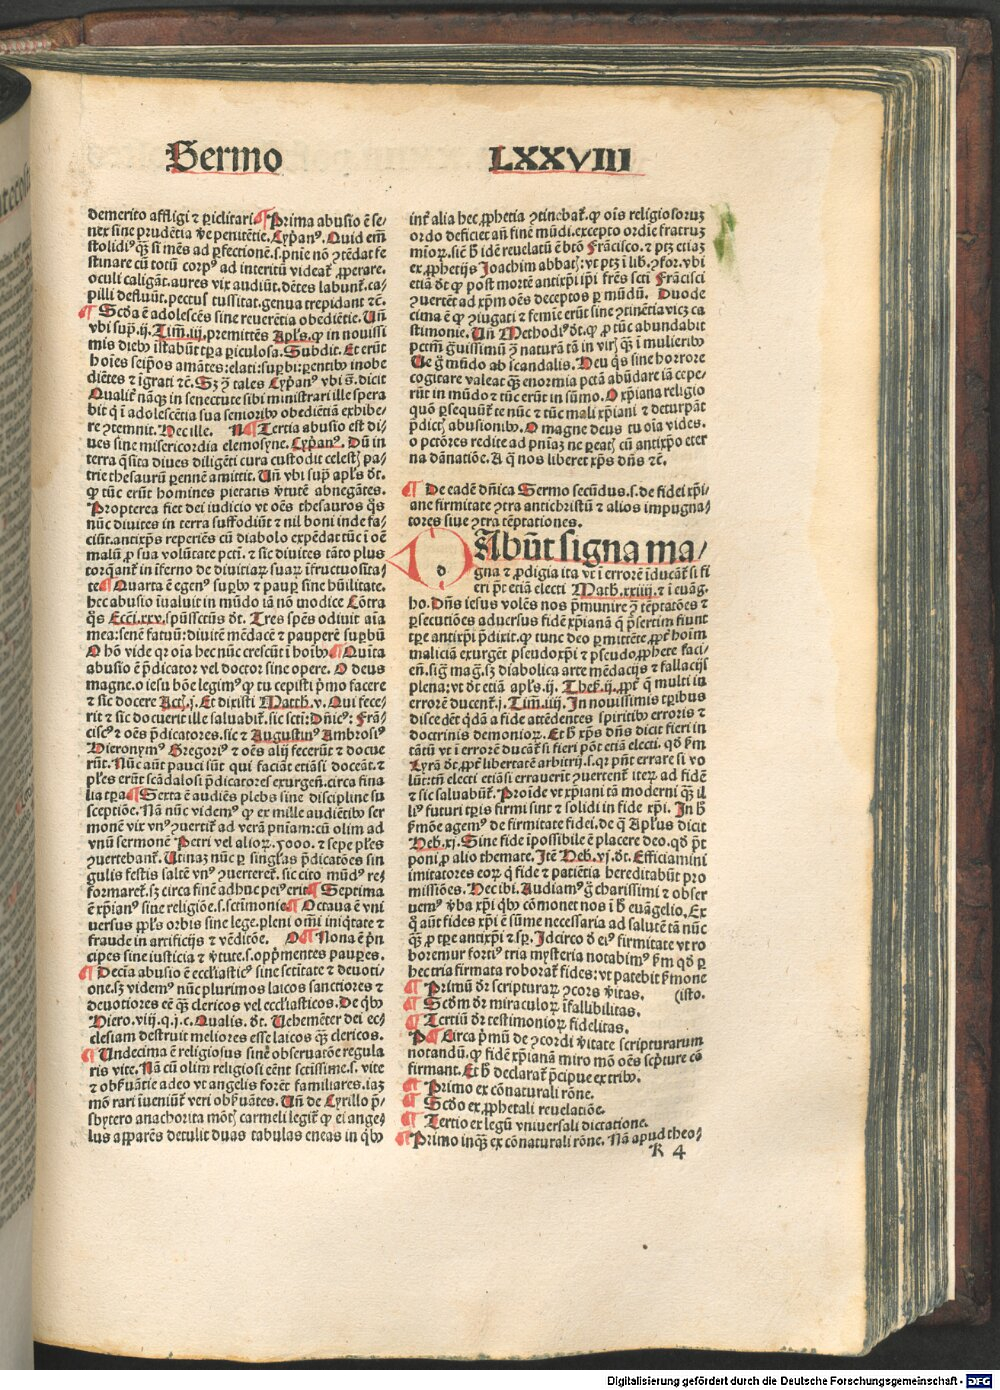 Sermo LXXVIII
demerito affligi ⁊ ꝑiclitari. ¶ Prima abusio ē se-
nex sine prudētia ⁊ͤ penitētie. Cypꝛianꝰ. Quid em̄
stolidiꝰ qȝ si mēs ad ꝑfectionē .s. pnīe nō ꝯtēdat fe
stinare cū totū corpꝰ ad interitū videat ꝓperare.
oculi caligāt. aures vix audiūt. dētes labunt. ca-
pilli defluūt. pectus tussitat. genua trepidant ⁊c̄.
¶ Scd̓a ē adolescēs sine reuerētia obediētie. Un̄
vbi sup̄. ij. Tim̄. iij. premittēs Apl̓s. ꝙ in nouissi
mis diebꝰ istabūt tꝑa piculosa. Subdit. Et erūt
hoīes seip̄os amātes: elati: suꝑbi: ꝑentibꝰ inobe
diētes ⁊ īgrati ⁊c̄. Sȝ ꝯ tales Cypꝛianꝰ vbi s̄. dicit
Qualit̓ nāqȝ in senectute sibi ministrari ille spera
bit q̇ ī adolescētia sua senioribꝰ obediētiā exhibe-
re ꝯtemnit. Hec ille. N ¶ Tertia abusio est di-
ues sine misericordia elemosyne. Cypꝛianꝰ. Dū in
terra q̄sita diues diligēti cura custodit celestꝭ pa-
trie thesaurū perennē amittit. Un̄ vbi sup̄ apl̓s dt̓.
ꝙ tūc erūt homines pietatis v̓tutē abnegātes.
Propterea fiet dei iudicio vt oēs thesauros q̄s
nūc diuites in terra suffodiūt ⁊ nil boni inde fa-
ciūt. antixp̄s reperiēs cū diabolo expēdat tūc ī oē
malū ꝓ sua volūtate pcti̓. ⁊ sic diuites tāto plus
torq̄ant̓ in īferno de diuitiaꝝ suaꝝ īfructuosita-
te. ¶ Quarta ē egenꝰ suꝑbꝰ ⁊ paup̄ sine hūilitate.
hec abusio iualuit in mūdo iā nō modice Cōtra
q̄s Ecc̓i. xxv. spūssctūs dt̓. Tres spēs odiuit aīa
mea: senē fatuū: diuitē mēdacē ⁊ pauperē suꝑbū
O hō vide qꝛ oīa hec nūc crescūt ī hoībꝰ. ¶ Quīta
abusio ē p̄dicator vel doctor sine opere. O deus
magne. o iesu bōe legimꝰ ꝙ tu cepisti p̄mo facere
⁊ sic docere Actꝭ. j. Et dixisti Matth. v. Qui fece-
rit ⁊ sic docuerit ille saluabit̓. sic scti̓: Dn̄icꝰ: Frā-
ciscꝰ ⁊ oēs p̄dicatores. sic ⁊ Augustinꝰ Ambrosiꝰ
Hieronymꝰ Gregoriꝰ ⁊ oēs alij fecerūt ⁊ docue
rūt. Nūc aūt pauci sūt qui faciāt etiāsi doceāt. ⁊
ples erūt scādalosi p̄dicatores exurgen̄. circa fina
lia tꝑa. ¶ Sexta ē audiēs plebs sine discipline su
sceptiōe. Nā nūc videmꝰ ꝙ ex mille audiētibꝰ ser
monē vix vnꝰ ꝯuertit̓ ad verā pniam: cū olim ad
vnū sermonē Petri vel alioꝝ. 5000. ⁊ sepe ples
ꝯuertebant̓. Utinaȝ nūc ꝑ singl̓as p̄dicatōes sin
gulis festis saltē vnꝰ ꝯuerteret̓. sic cito mūdꝰ re-
formaret̓. sȝ circa finē adhuc peiꝰ erit. ¶ Septima
ē xp̄ianꝰ sine religiōe. s. sctīmonie. ¶ Octaua ē vni
uersus ppl̓s orbis sine lege. pleni om̄i iniq̇tate ⁊
fraude in artificijs ⁊ vēditōe. O ¶ Nona ē p̄n
cipes sine iusticia ⁊ v̓tute. s. opp̄mentes paupes.
¶ Decīa abusio ē ecclīasticꝰ sine sctītate ⁊ deuoti-
one. sȝ videmꝰ nūc plurimos laicos sanctiores ⁊
deuotiores eē qȝ clericos vel ecclīasticos. De q̇bꝰ
Hiero. viij. q. j. c. Qualis. dt̓. Uehemēter dei ec-
clesiam destruit meliores esse laicos qȝ clericos.
¶ Undecima ē religiosus sine obseruatōe regula
ris vite. Nā cū olim religiosi eēnt sctīssime. s. vite
⁊ obs̓uātie adeo vt angelis forēt familiares. iaȝ
mō rari iueniūt̓ veri obs̓uātes. Un̄ de Cyrillo p̄s-
bytero anachorita mōtꝭ carmeli legit̓ ꝙ ei ange-
lus apparēs detulit duas tabulas eneas in q̇bꝰ
int̓ alia hec ꝓphetia ꝯtinebat̓. ꝙ oīs religiosoruȝ
ordo deficiet an̄ finē mūdi. excepto ordīe fratruȝ
mioꝝ. siē h̄ idē reuelatū ē btō Francisco. ⁊ ptȝ etiaȝ
ex ꝓphetijs Joachim abbatꝭ: vt ptȝ ī lib. ꝯfor. vbi
etiā dt̓ ꝙ post mortē antixp̄i ip̄i frēs sci Frācisci
ꝯuertēt ad xp̄m oēs deceptos ꝑ mūdū. Duode
cima ē ꝙ ꝯiugati ⁊ femīe erūt sine ꝯtinētia viceȝ ca
stimonie. Un̄ Methodiꝰ dt̓. ꝙ ꝓ tūc abundabit
pctm̄ g̓uissimū ꝯ naturā tā in virꝭ qȝ ī mulieribꝰ
Ue g̓ mūdo ab scandalis. Heu q̄s sine horrore
cogitare valeat qȝ enormia pctā abūdare iā cepe-
rūt in mūdo ⁊ tūc erūt in sūmo. O xp̄iana religio
quō ꝑsequūt̓ te nūc ⁊ tūc mali xp̄iani ⁊ deturpāt
p̄dictꝭ abusionibꝰ. O magne deus tu oīa vides.
o pctōres redite ad pniaȝ ne peatꝭ cū antixp̄o eter
na dānatiōe. A q̄ nos liberet xp̄s dn̄s ⁊c̄.
¶ De eadē dn̄ica Sermo secūdus. s. de fidei xp̄i-
ane firmitate ꝯtra antichristū ⁊ alios impugna-
tores siue ꝯtra tēptationes.
d Abūt signa ma-
gna ⁊ ꝓdigia ita vt ī errorē iducāt̓ si fi
eri pt̄ etiā electi Math. xxiiij. ⁊ ī euāg.
ho. Dn̄s iesus volēs nos p̄munire ꝯ tēptatōes ⁊
ꝑsecutiōes aduersus fidē xp̄ianā q̄ p̄sertim fiunt
tꝑe antixp̄i p̄dixit. ꝙ tunc deo ꝑmittēte ꝓpt̓ hoīm
maliciā exurgēt pseudoxp̄i ⁊ pseudo ꝓphete faci-
en̄. sig̓ mag̓. sȝ diabolica arte mēdacijs ⁊ fallacijs
plena: vt dt̓ etiā apl̓s. ij. Thes̓. ij. ꝓpt̓ q̄ multi in
errorē ducent̓. j. Tim̄. iiij. In nouissimis tꝑibus
discedēt q̄dā a fide attēdentes spiritibꝰ erroris ⁊
doctrinis demonioꝝ. Et h̄ xp̄s dn̄s dicit fieri in
tātū vt ī errorē ducāt̓ si fieri pōt etiā electi. qd̓ s̓m
Lyrā dt̓. ꝓpt̓ libertatē arbitrij. s. qꝛ pn̄t errare si vo
lūt: tn̄ electi etiāsi errauerīt ꝯuertent̓ iteꝝ ad fidē
⁊ sic saluabūt̓. Proīde vt xp̄iani tā moderni qȝ il
liꝰ futuri tꝑis firmi sint ⁊ solidi in fide xp̄i. In h̄
s̓mōe agemꝰ de firmitate fidei. de q̄ Apl̓us dicit
Heb. xj. Sine fide īpossibile ē placere deo. qd̓ pt̄
poni ꝓ alio themate. Jtē Heb. vj. dt̓. Efficiamini
imitatores eoꝝ q̇ fide ⁊ patiētia hereditabūt pro
missiōes. Hec ibi. Audiamꝰ g̓ charissimi ⁊ obser
uemꝰ v̓ba xp̄i q̇bꝰ cōmonet nos ī h̄ euāgelio. Ex
q̇ aūt fides xp̄i ē sūme necessaria ad salutē tā nūc
qȝ ꝓ tꝑe antixp̄i ⁊ sp̄. Jdcirco d̓ eiꝰ firmitate vt ro
boremur fortiꝰ tria mysteria notabimꝰ s̓m qd̓ ꝑ
hec tria firmata roborat̓ fides: vt patebit s̓mone
¶ Primū dr̄ scripturaꝝ ꝯcors v̓itas. (isto.
¶ Scd̓m dr̄ miraculoꝝ īfallibilitas.
¶ Tertiū dr̄ testimonioꝝ fidelitas.
P ¶ Circa p̄mū de ꝯcordi v̓itate scripturarum
notandū. ꝙ fidē xp̄ianā miro mō oēs sc̓pture cō
firmant. Et h̄ declarat̓ p̄cipue ex tribꝰ.
¶ Primo ex cōnaturali rōne.
¶ Scd̓o ex ꝓphetali reuelatiōe.
¶ Tertio ex legū vniuersali dictatione.
¶ Primo inqȝ ex cōnaturali rōne. Nā apud theo-
K 4
Digitalisierung gefördert durch die Deutsche Forschungsgemeinschaft - DFG